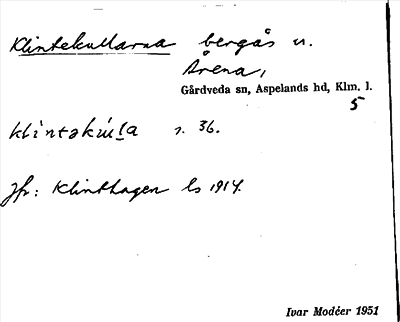 Klintekullarna bergås n.
Årena,
Gårdveda sn, Aspelands hd, Klm. l.
5
klintəkul̥a s. 36.
Jfr: Klinthagen ls 1914.
Ivar Modéer 1951